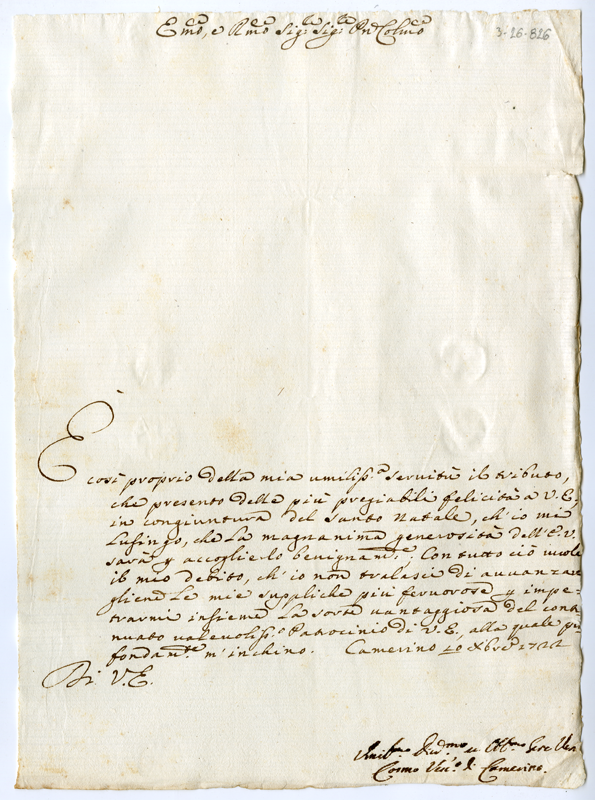 Emo, e Rmo Sig:re Sig:re Pne Colmo
3-26-826
È così proprio della mia umiliss.a servitù il tributo,
che presento delle più pregiabili felicità a V.E.
in congiuntura del Santo Natale, ch'io mi
lusingo, che la magnanima generosità dell'E.V.
sarà p accoglierlo benignam.te; Con tutto ciò vuole
il mio debito, ch'io non tralasci di avvanzar
gliene le mie suppliche più fervorose p impe-
trarmi insieme la sorte vantaggiosa del conti
nuato valevoliss.o Patrocinio di V.E. alla quale pro
fondam.te m'inchino. Camerino 20 Xbre
Di V.E.
Umilmo Divmo et Obbmo Serv Vero
Cosmo Vesc.o di Camerino.